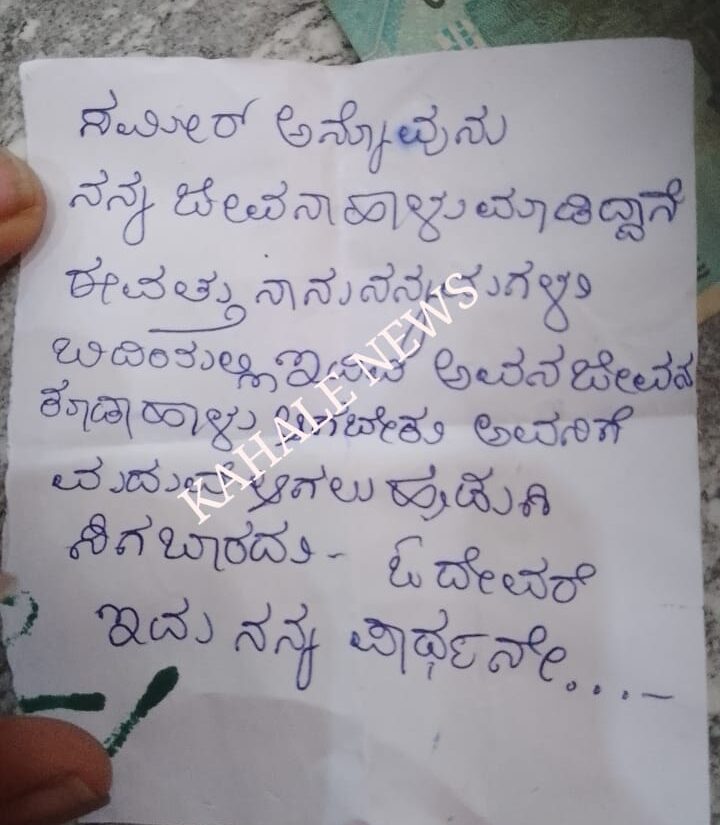 ಸಮೀರ್ ಅನ್ನೋವುನು
ನನ್ನ ಜೀವನಾ ಹಾಳು ಮಾಡಿದ್ದಾನೆ
ಈವತ್ತು ನಾನು ನನ್ನ ಮಗಳು
ಬಿದಿಯಲ್ಲಿ ಇದಿವಿ ಅವನ ಜೀವನ
ಕೂಡಾ ಹಾಳು ಆಗಬೇಕು ಅವನಿಗೆ
ಮದುವೆ ಆಗಲು ಹುಡುಗಿ
ಸಿಗಬಾರದು - ಓ ದೇವರೆ
ಇದು ನನ್ನ ಪಾರ್ಥನೇ...-
KAHALE NEWS